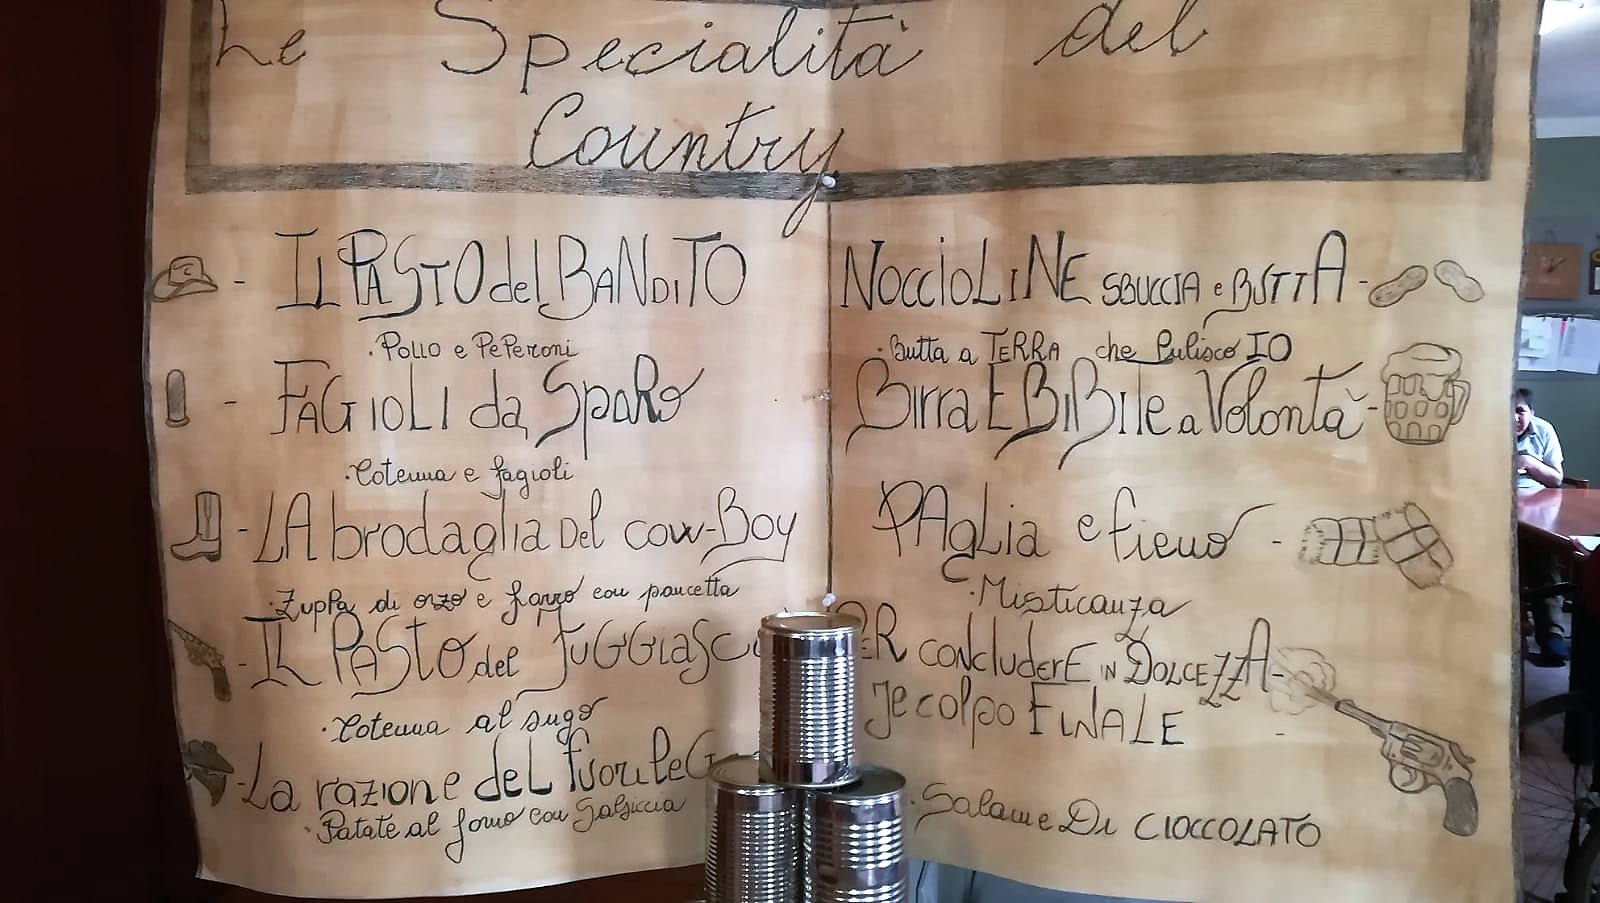 Le Specialità del
Country
IL PASTO del BANDITO
Pollo e Peperoni
FAGIOLI da SpaRo
Cotenna e fagioli
LA brodaglia Del cow-Boy
Zuppa di orzo e farro con pancetta
IL PASTO del FuGGiasc
Cotenna al sugo
La razione deL fuorileG
Patate al forno con Salsiccia
NoccioLiNE SBUCCIA e BUTTA
Butta a TERRA che Pulisco IO
Birra E BiBiTe a Volontà
PAgLia e fieno
Misticanza
PER concludere in DOLCEZZA
Je colpo FINALE
Salame Di CIOCCOLATO